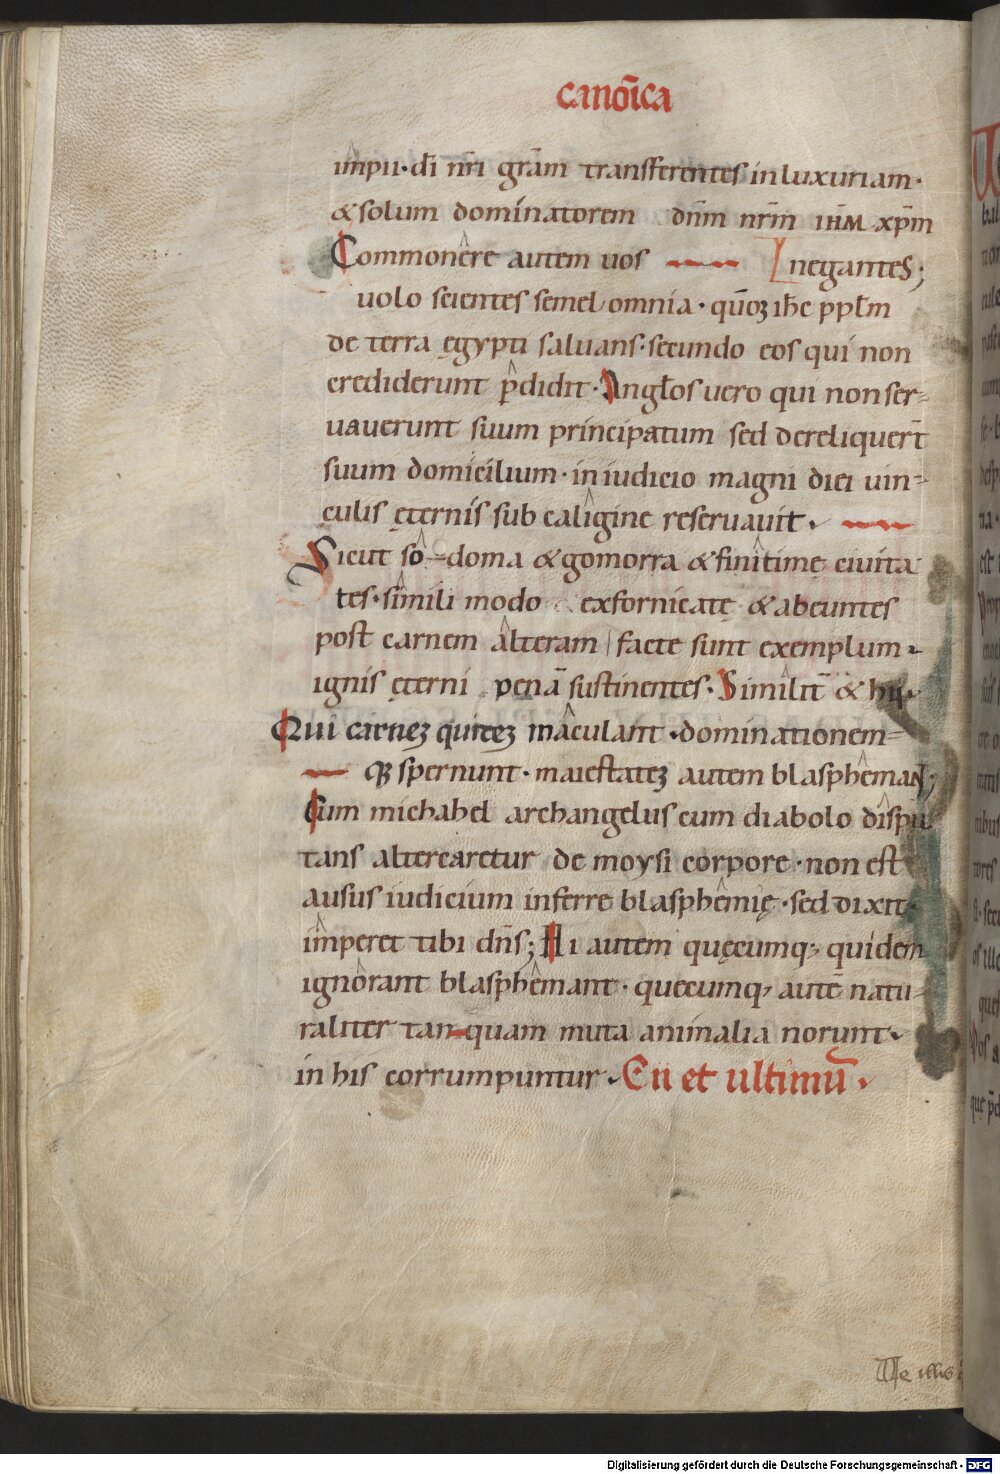 canōica
impii · dī nr̄i gr̄am transferentes in luxuriam ·
& solum dominatorem dn̄m nr̄m ihm̄ xp̄m
Commonere autem uos negantes;
uolo scientes semel omnia · qm̄ ihc̄ ppl̄m
de terra ęgypti saluans · secundo eos qui non
crediderunt p̄didit · Angl̄os uero qui non ser-
uauerunt suum principatum sed dereliquer̄t
suum domicilium · in iudicio magni diei uin-
culis ęternis sub caligine reseruauit ·
Sicut so-doma & gomorra & finitimę ciuita
tes · simili modo exfornicatę & abeuntes
post carnem alteram factę sunt exemplum ·
ignis ęterni penā sustinentes · Similit̄ & hii ·
Qui carneꝫ quideꝫ maculant · dominationem-
qꝫ spernunt · maiestateꝫ autem blasphemant;
Cum michahel archangelus cum diabolo dispu
tans altercaretur de moysi corpore · non est
ausus iudicium inferre blasphemię · sed dixit ·
imperet tibi dn̄s; Hi autem quęcumq; quidem
ignorant blasphemant · quęcumq; autē natu-
raliter tan-quam muta animalia norunt ·
in his corrumpuntur · En et ultimū ·
Ue illis
Digitalisierung gefördert durch die Deutsche Forschungsgemeinschaft - DFG